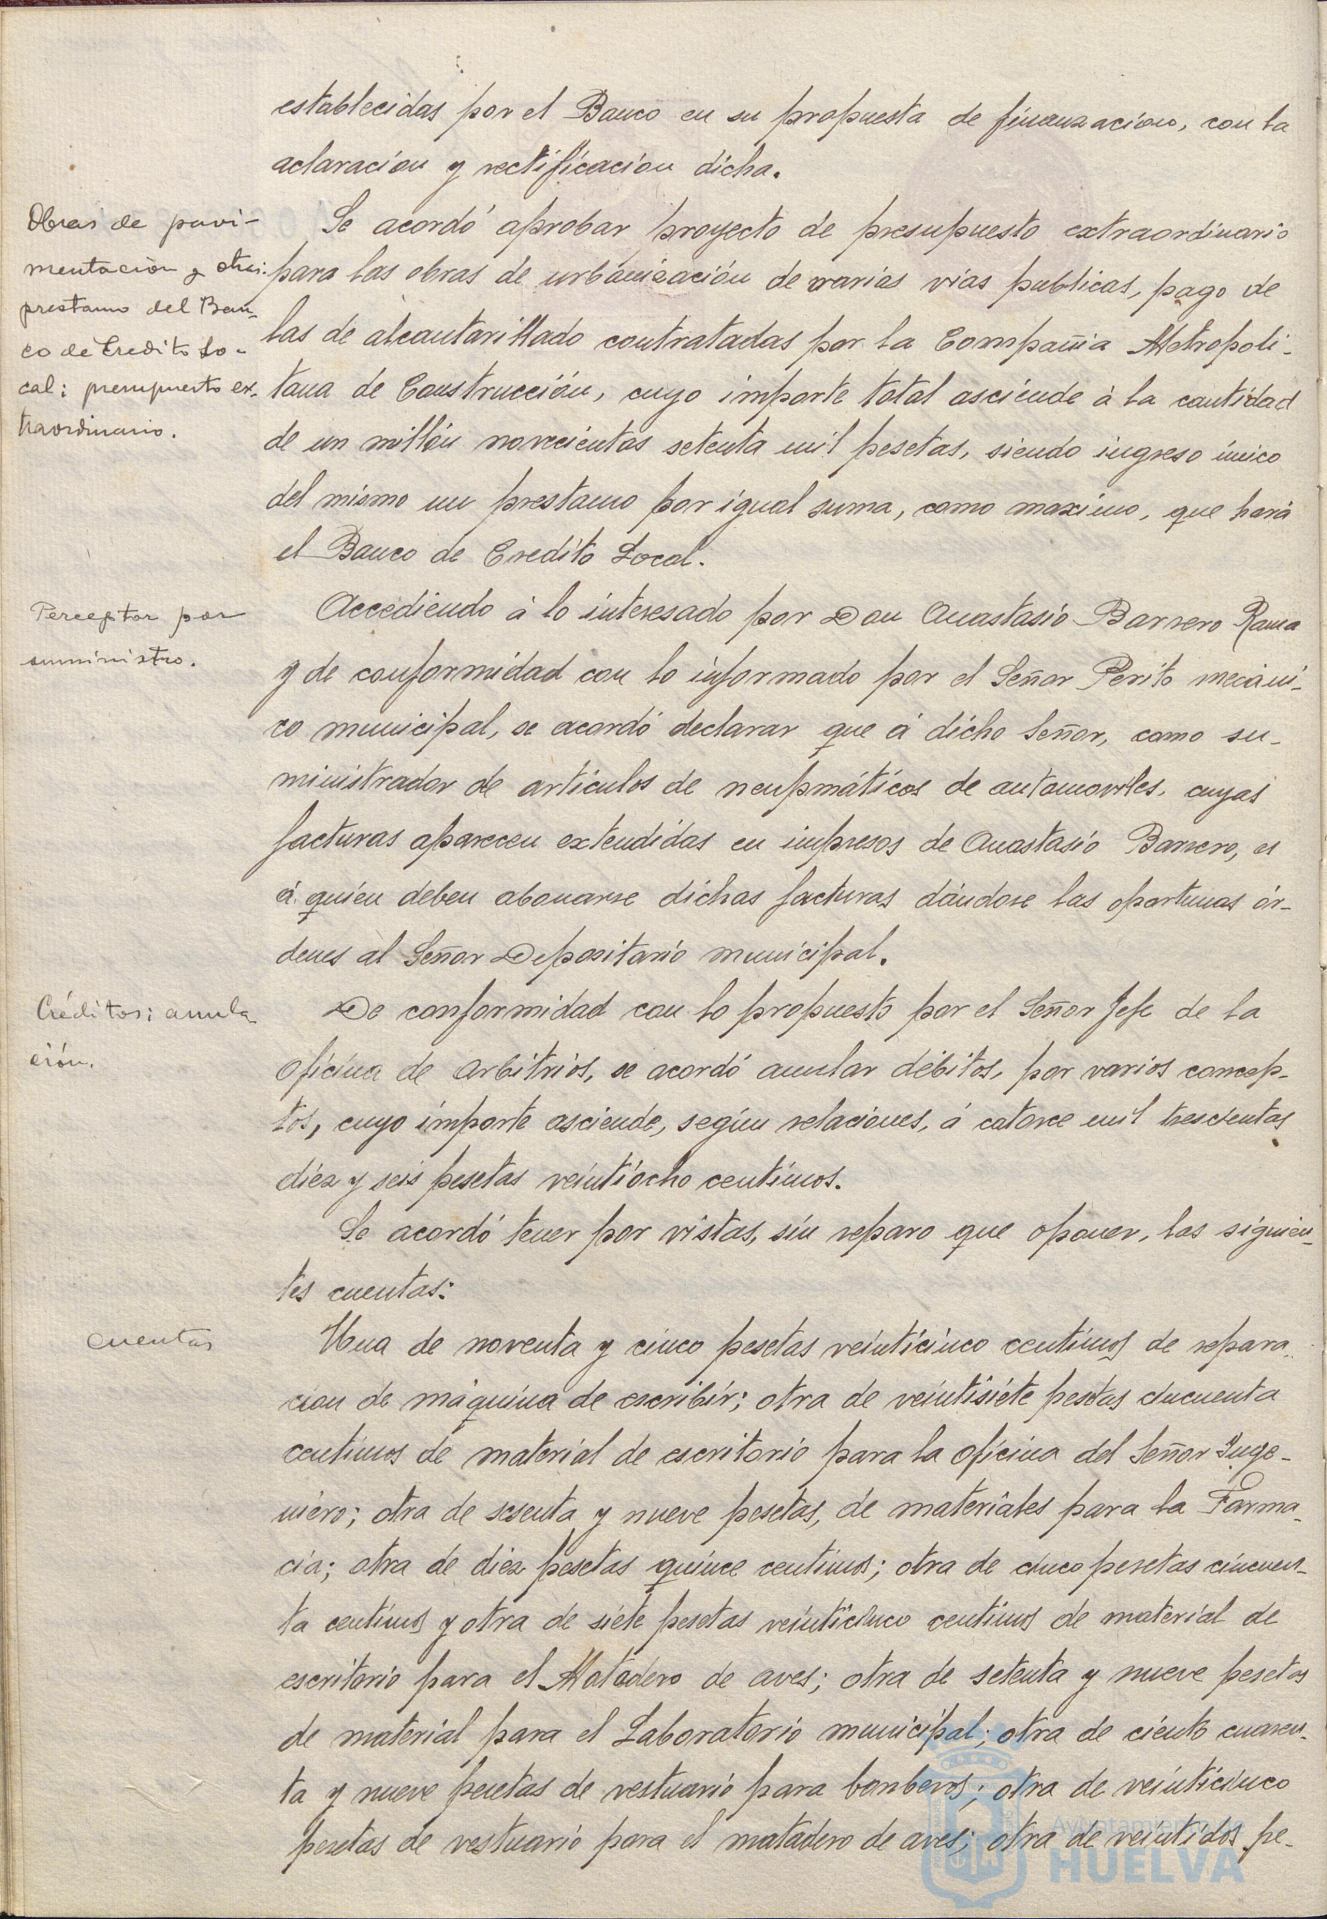 establecidas por el Banco en su propuesta de finanzacion, con la
aclaracion y rectificacion dicha.
Obras de pavi-
mentacion y otras:
prestamo del Ban-
co de Credito Lo-
cal: presupuesto ex-
traordinario.
Se acordó aprobar proyecto de presupuesto extraordinario
para las obras de urbanización de varias vías publicas, pago de
las de alcantarillado contratadas por la Compañia Metropoli-
tana de Construcción, cuyo importe total asciende á la cantidad
de un millón novecientas setenta mil pesetas, siendo ingreso único
del mismo un prestamo por igual suma, como maximo, que hará
el Banco de Credito Local.
Perceptor por
suministro.
Accediendo á lo interesado por Don Anastasio Barrero Rama
y de conformidad con lo informado por el Señor Perito mecáni-
co municipal, se acordó declarar que á dicho Señor, como su-
ministrador de artículos de neupmáticos de automoviles, cuyas
facturas aparecen extendidas en impresos de Anastasio Barrero, es
á quien deben abonarse dichas facturas dándose las oportunas ór-
denes al Señor Depositario municipal.
Créditos: anula
ción.
De conformidad con lo propuesto por el Señor Jefe de la
Oficina de Arbitrios, se acordó anular débitos, por varios concep-
tos, cuyo importe asciende, según relaciones, á catorce mil trescientas
diez y seis pesetas veintiocho centimos.
Se acordó tener por vistas, sin reparo que oponer, las siguien-
tes cuentas:
Cuentas
Una de noventa y cinco pesetas veinticinco centimos de repara-
cion de máquina de escribir; otra de veintisiete pesetas cincuenta
centimos de material de escritorio para la oficina del Señor Inge-
niero; otra de sesenta y nueve pesetas, de materiales para la Farma-
cia; otra de diez pesetas quince centimos; otra de cinco pesetas cincuen-
ta centimos y otra de siete pesetas veinticinco centimos de material de
escritorio para el Matadero de aves; otra de setenta y nueve pesetas
de material para el Laboratorio municipal; otra de ciento cuaren-
ta y nueve pesetas de vestuario para bomberos; otra de veinticinco
pesetas de vestuario para el matadero de aves; otra de veintidos pe-
Ayuntamiento de
HUELVA